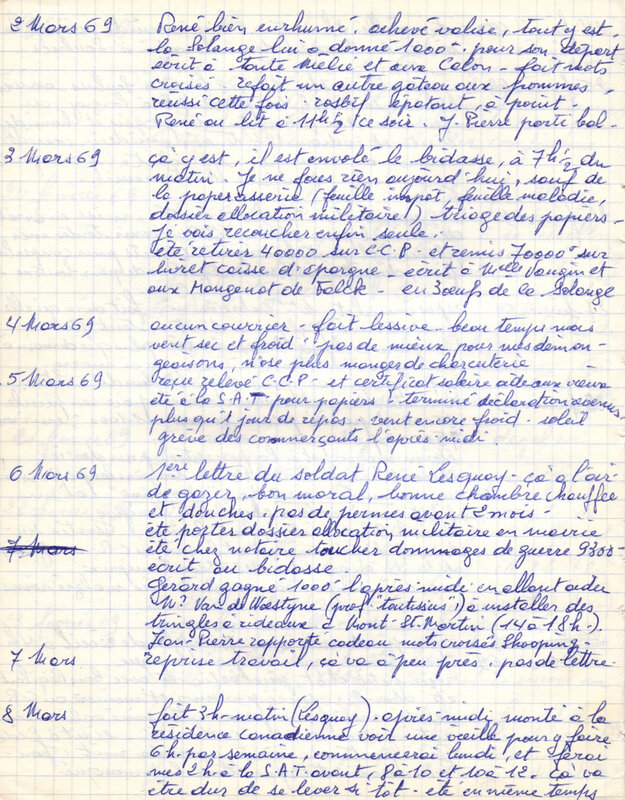 2 Mars 69 René bien enrhumé. achevé valise, tout y est
la Solange lui a donné 1000 pour son départ
écrit à tante Mélie et aux Colon - fait mots
croisés - refait un autre gâteau aux pommes,
réussi cette fois. rosbif épatant, à point -
René au lit à 11h½ ce soir. J. Pierre parti bal -
3 Mars 69 çà y est, il est envolé le bidasse, à 7h½ du
matin. Je ne fous rien aujourd'hui, sauf de
la paperasserie (feuille impôt, feuille maladie,
dossier allocation militaire!) triage des papiers -
Je vais recoucher enfin seule.
été retirer 40000 sur C.C.P. et remis 70000 sur
livret caisse d'épargne - écrit à Melle et
aux Mangenot de Falck - eu 3 œufs de la Solange
4 Mars 69 aucun courrier - fait lessive - beau temps mais
vent sec et froid. pas de mieux pour mes déman-
geaisons, n'ose plus manger de charcuterie
5 Mars 69 reçu relevé C.C.P. et certificat salaire aide aux vieux
été à la S.A.T pour papiers - terminé déclaration revenus
plus qu'1 jour de repos. vent encore froid - soleil
grève des commerçants l'après-midi.
6 Mars 69 1ère lettre du soldat René Lesquoy - çà a l'air
de gazer, bon moral, bonne chambre chauffée
et douches. pas de permes avant 2 mois -
été porter dossier allocation militaire en mairie
7 Mars été chez notaire toucher dommages de guerre 9300 -
écrit au bidasse.
Gérard gagné 1000 l'après-midi en allant aider
Mr Van de Woestyne (prof "toutissus") à installer des
tringles à rideaux à Mont-St-Martin (14 à 18h.).
Jean-Pierre rapporté cadeau mots croisés Shopping -
7 Mars reprise travail, çà va à peu près. pas de lettre -
8 Mars fait 3h. matin (Lesquoy). après midi monté à la
résidence canadienne voir une vieille pour y faire
6h. par semaine, commencerai lundi, et ferai
mes 2h à la S.A.T. avant, 8 à 10 et 10 à 12. çà va
être dur de se lever si tôt - été en même temps